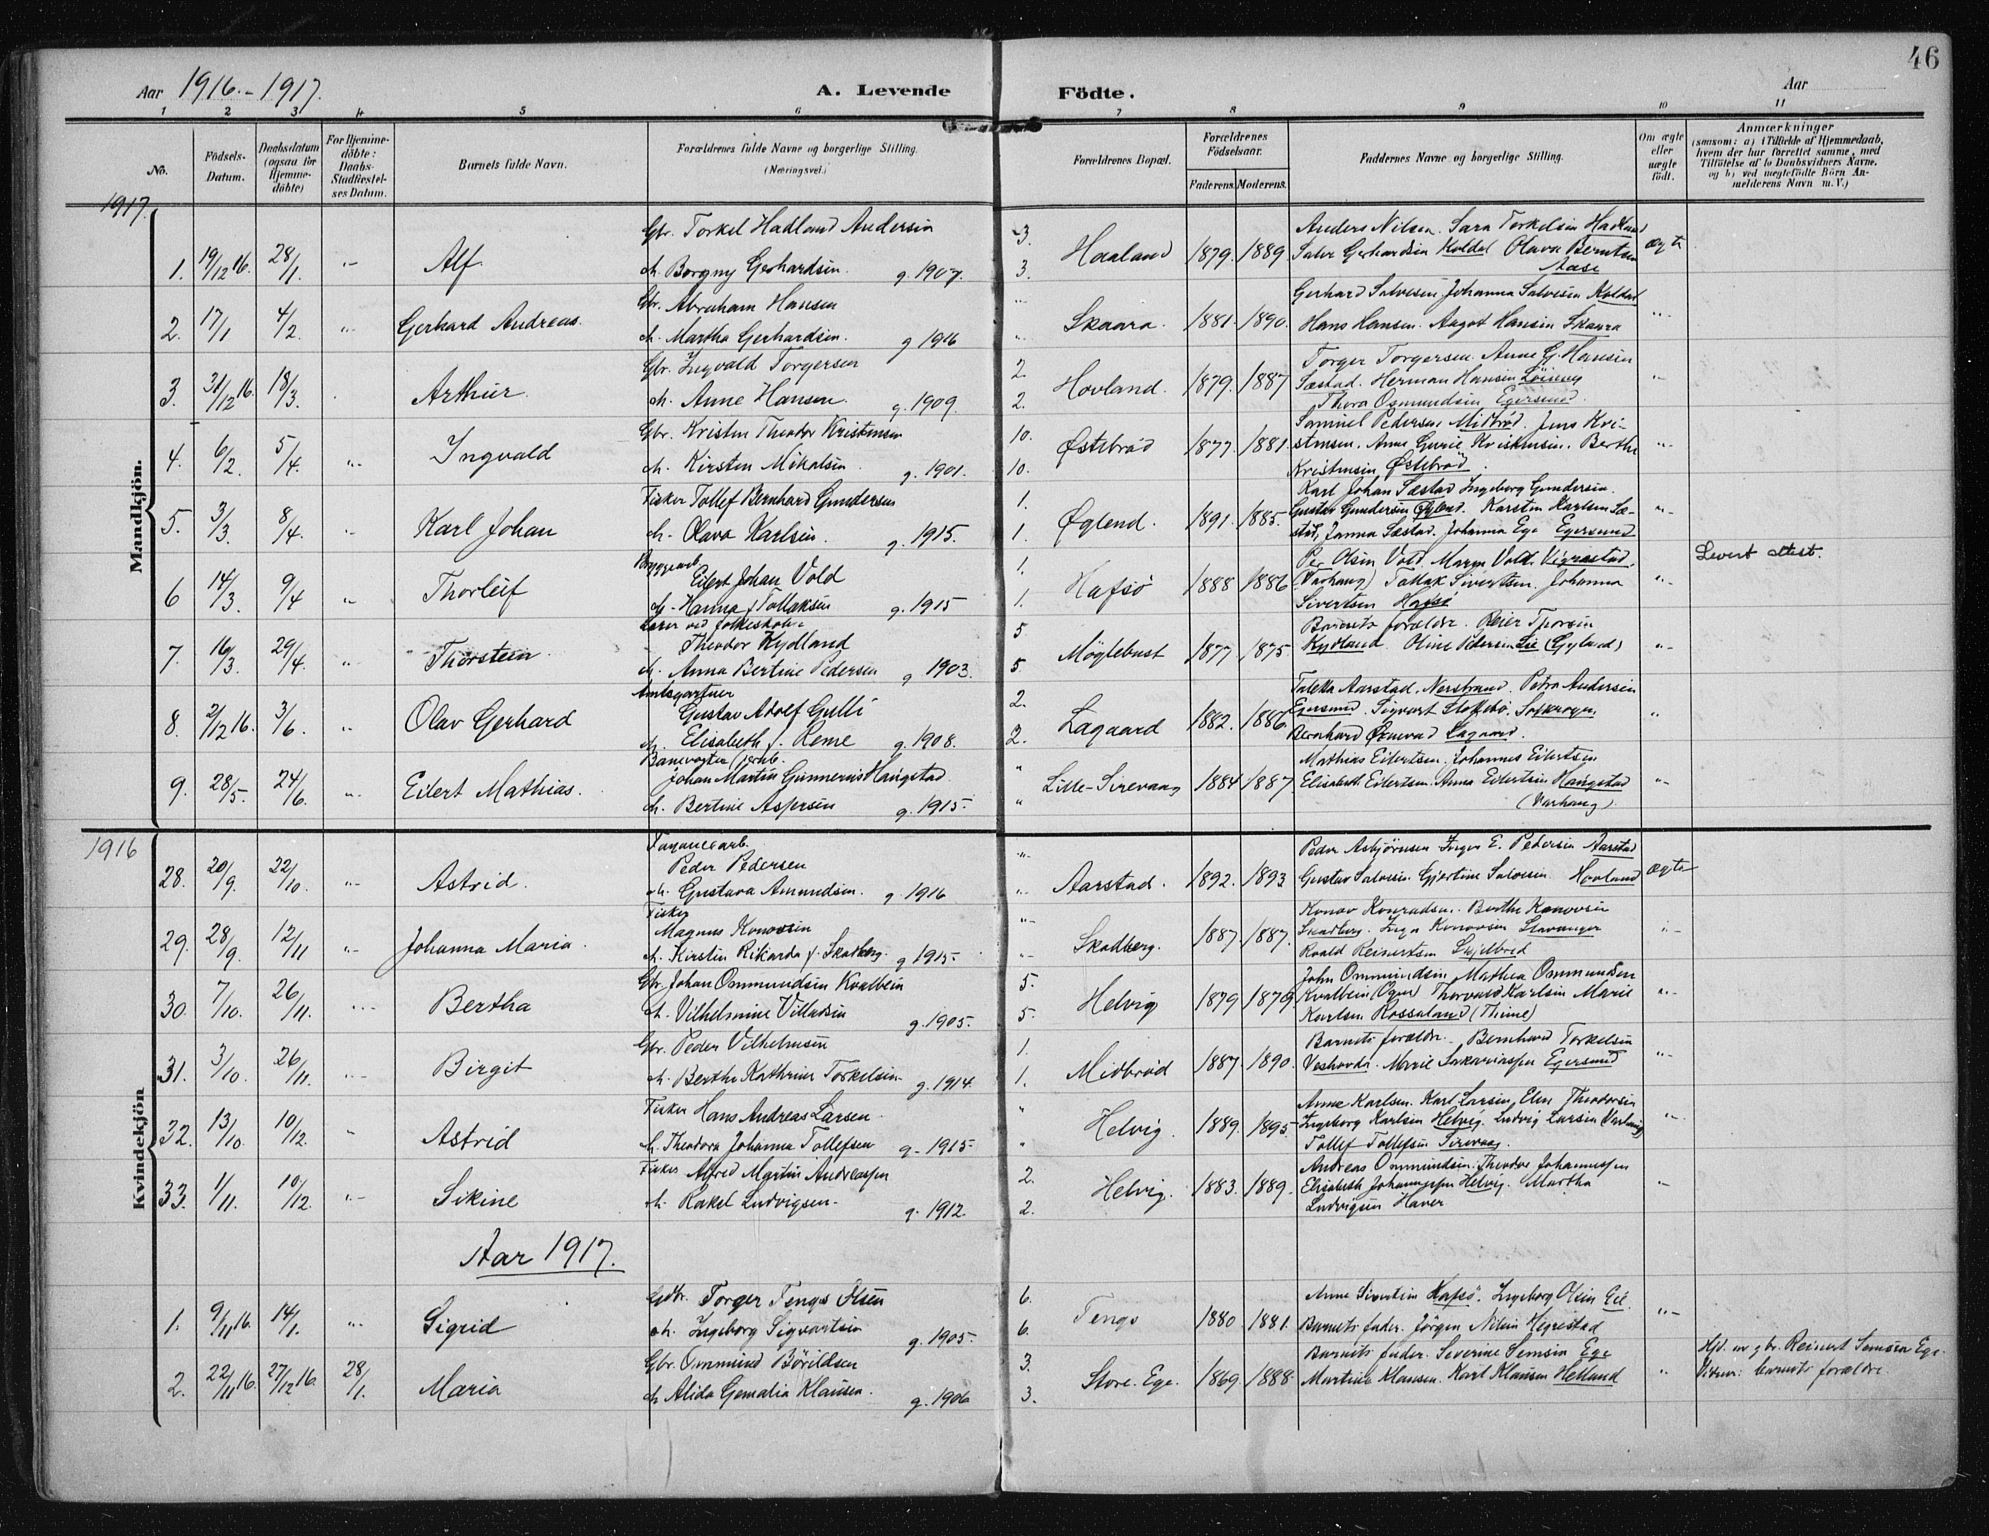 46
Aar 1916.-1917. A. Levende Födte. Aar
1 2 3 4 5 6 7 8 9 10 11
No. Födsels-Datum. Daabsdatum (ogsaa for Hjemme-döbte) For Hjemme-döbte: Daabs-Stadfæstel-ses Datum. Barnets fulde Navn. Forældrenes fulde Navne og borgerlige Stilling. (Næringsvei.) Forældrenes Bopæl. Forældrenes Födselsaar. Faderens. Moderens. Faddernes Navne og borgerlige Stilling. Om ægte eller uægte födt. Anmærkninger (saasom: a) i Tilfælde af Hjemmedaab, hvem der har forrettet samme, med Tilföielse af to Daabsvidners Navne, og b) ved uægtefödte Börn An-melderens Navn m. V.)
1917.
Mandkjön.
Gbr. Torkel Hadland Andersen 3. Anders Nilsen. Sara Torkelsen Hadland
1. 19/12 16. 28/1. Alf. Haaland 1879. 1889 Gerhardsen Koldal Olava Berntsen ægte
m. Borgny Gerhardsen. g. 1907. 3. Aase
Gbr. Abraham Hansen Gerhard Salvesen, Johanna Salvesen Koldal
2. 17/1 4/2 Gerhard Andreas. Skaara. 1881. 1890. Hans Hansen. Aagot Hansen Skaara
m. Martha Gerhardsen. g 1916
Gbr. Ingvald Torgersen 2. Torger Torgersen. Anne G. Hansen
3. 31/12 16. 18/3. Arthur. Hovland. 1879. 1887 Sæstad. Herman Hansen
m. Anne Hansen. g. 1909. 2. Thora Osmundsen Egersund.
Gbr. Kristen Theodor Kristensen 10. Samuel Pedersen Midbrød. Jens Kri-
4. 6/2. 5/4. Ingvald Østebrød 1877. 1881. stensen. Anne Gurie Kristensen. Berthe
m. Kirsten Mikalsen. g. 1901. 10. Kristensen Østebrød.
Fisker Tollef Bernhard Gundersen 1. Karl Johan Sæstad Ingeborg Gundersen.
5. 3/3. 8/4. Karl Johan Øglend. 1891. 1885. Gustav Gundersen Øglend. Karsten Karlsen Sæ-
m. Olava Karlsen. g. 1915. 1. stad, Janna Sæstad. Johanna Ege Egersund
Bryggearb. Eilert Johan Vold 1. Per Olsen Vold. Maren Vold. Vigrestad. Levert attest.
6 14/3. 9/4 Thorleif Hafsø 1888 1886 (Varhaug) Tollak Sivertsen. Johanna
m. Hanna f. Tollaksen g. 1915 1. Sivertsen Hafsø
Lærer ved folkeskole Theodor Kydland 5 Barnets forældre. Reier Thorsen
7. 16/3. 29/4 Thorstein. Møglebust 1877 1875 Kydland. Oline Pedersen Lie (Gyland)
m. Anna Bertine Pedersen g 1903. 5.
Amtsgartner Gustav Adolf Gulli 2. Aarstad. Nerstrand. Petra Andersen
8. 2/12 16. 3/6. Olav Gerhard Lagaard 1882. 1886. Egersund. Sigvart
m. Elisabeth f. Reme g. 1908. 2. Bernhard Lagaard.
Banevogter Johan Martin Gunnerius Haugstad Mathias Eilertsen. Johannes Eilertsen
9. 28/5. 24/6. Eilert Mathias. Lille-Sirevaag 1884 1887. Elisabeth Eilertsen. Anna Eilertsen Haugstad
m. Bertine Aspersen g. 1915. (Varhaug).
1916
Kvindekjön
Fayancearb. Peder Pedersen Peder Asbjörnsen Inger E. Pedersen Aarstad
28. 20/9. 22/10. Astrid. Aarstad. 1892. 1893 Gustav Salvesen. Gjertine Salvesen Hovland ægte
m. Gustava Amundsen. g 1916
Fisker Magnus Konovsen Konov Konradsen. Berthe Konovsen
29. 28/9. 12/11 Johanna Maria. Skadberg. 1887. 1887. Skadberg. Inga Konovsen Stavanger
m. Kirsten Rikarda f. Skadberg. g 1915. Roald Reinertsen Skjelbred
Gbr. Johan Ommundsen Kvalbein 5. John Ommundsen Mathea Ommundsen
30. 7/10. 26/11. Bertha Helvig 1879 1879 Kvalbein (Ogne) Thorvald Karlsen Marie
m. Vilhelmine Villadsen g. 1905. 5. Karlsen Rossaland (Thime)
Gbr. Peder Vilhelmsen 1. Barnets forældre. Bernhard Torkelsen
31. 3/10. 26/11. Birgit Midbrød 1887. 1890. Marie Sakariassen Egersund
m. Berthe Kathrine Torkelsen. g. 1914. 1.
Fisker Hans Andreas Larsen Anne Karlsen. Karl Larsen, Elen Theodorsen
32. 13/10. 10/12. Astrid Helvig. 1889. 1895. Ingeborg Karlsen Helvig. Ludvig Larsen (Varhaug)
m. Theodora Johanna Tollefsen g. 1915. Tollef Tollefsen Sirevaag.
Fisker Alfred Martin Andreassen 2. Andreas Ommundsen. Theodor Johannessen
33. 1/11. 10/12. Sikine Helvig. 1883. 1889. Elisabeth Johannessen Helvig. Martha
m. Rakel Ludvigsen. g. 1912. 2. Ludvigsen Haver
Aar 1917.
Gdbr. Torger Tengs Olsen 6. Anne Sivertsen Hafsø. Ingeborg Olsen Eie.
1. 9/11 16. 14/1. Sigrid Tengs 1880 1881. Barnets fader. Jörgen Nilsen Hegrestad
m. Ingeborg Sigvartsen g. 1905. 6.
Gbr. Ommund Börildsen 3. Barnets fader. Severine Semsen Ege Hjd. av gbr. Reinert Semsen Ege.
2. 22/11 16. 27/12 16. 28/1. Maria Store-Ege. 1869. 1888. Martine Klausen. Karl Klausen Hetland barnets forældre.
m. Alida Gemalia Klausen. g. 1906 3.